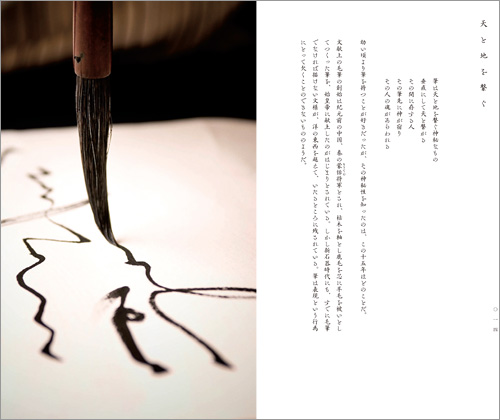 天と地を繋ぐ
筆は天と地を繋ぐ神秘なもの
垂直にして天と繋がる
その間に存する人
その筆先に神が宿り
その人の魂があらわれる
幼い頃より筆を持つことが好きだったが、その神秘性を知ったのは、この十五年ほどのことだ。
文献上の毛筆の創始は紀元前の中国、秦の蒙恬将軍とされ、枯木を軸とし鹿毛を芯に羊毛を被いとし
てつくった筆を、始皇帝に献上したのがはじまりとされている。しかし新石器時代にも、すでに毛筆
でなければ描けない文様が、洋の東西を超えて、いたるところに残されている。筆は表現という行為
にとって欠くことのできないもののようだ。
〇一四